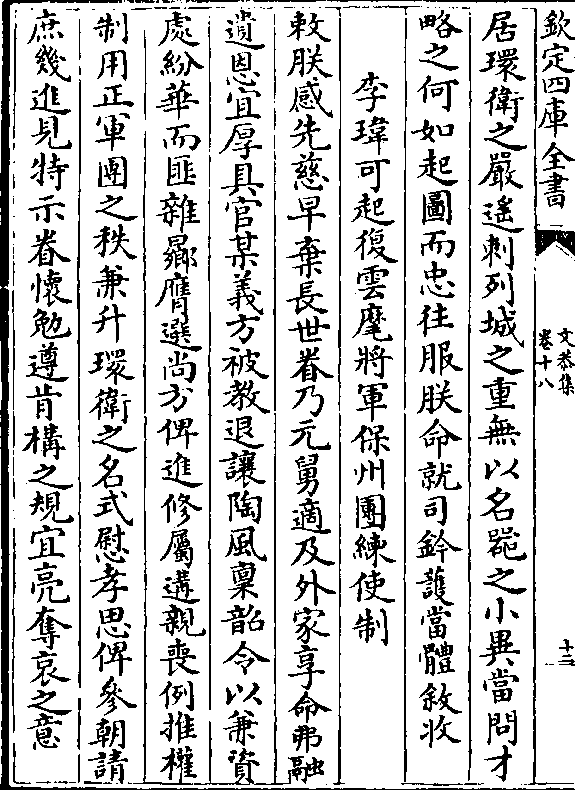 欽定四庫全書
文恭集
卷十八
十三
居環衛之嚴遙刺列城之重無以名器之小異當問才
略之何如起圖而忠往服朕命就司鈐護當體敘收
李瑋可起復雲麾將軍保州團練使制
敕朕感先慈早棄長世眷乃元舅適及外家享命弗融
遺恩宜厚具官某義方被教退讓陶風稟韶令以兼資
處紛華而匪雜鄹膺選尚方俾進修屬遘親喪例推權
制用正軍團之秩兼升環衛之名式慰孝思俾參朝請
庶幾進見特示眷懷勉遵肯構之規宜亮奪哀之意